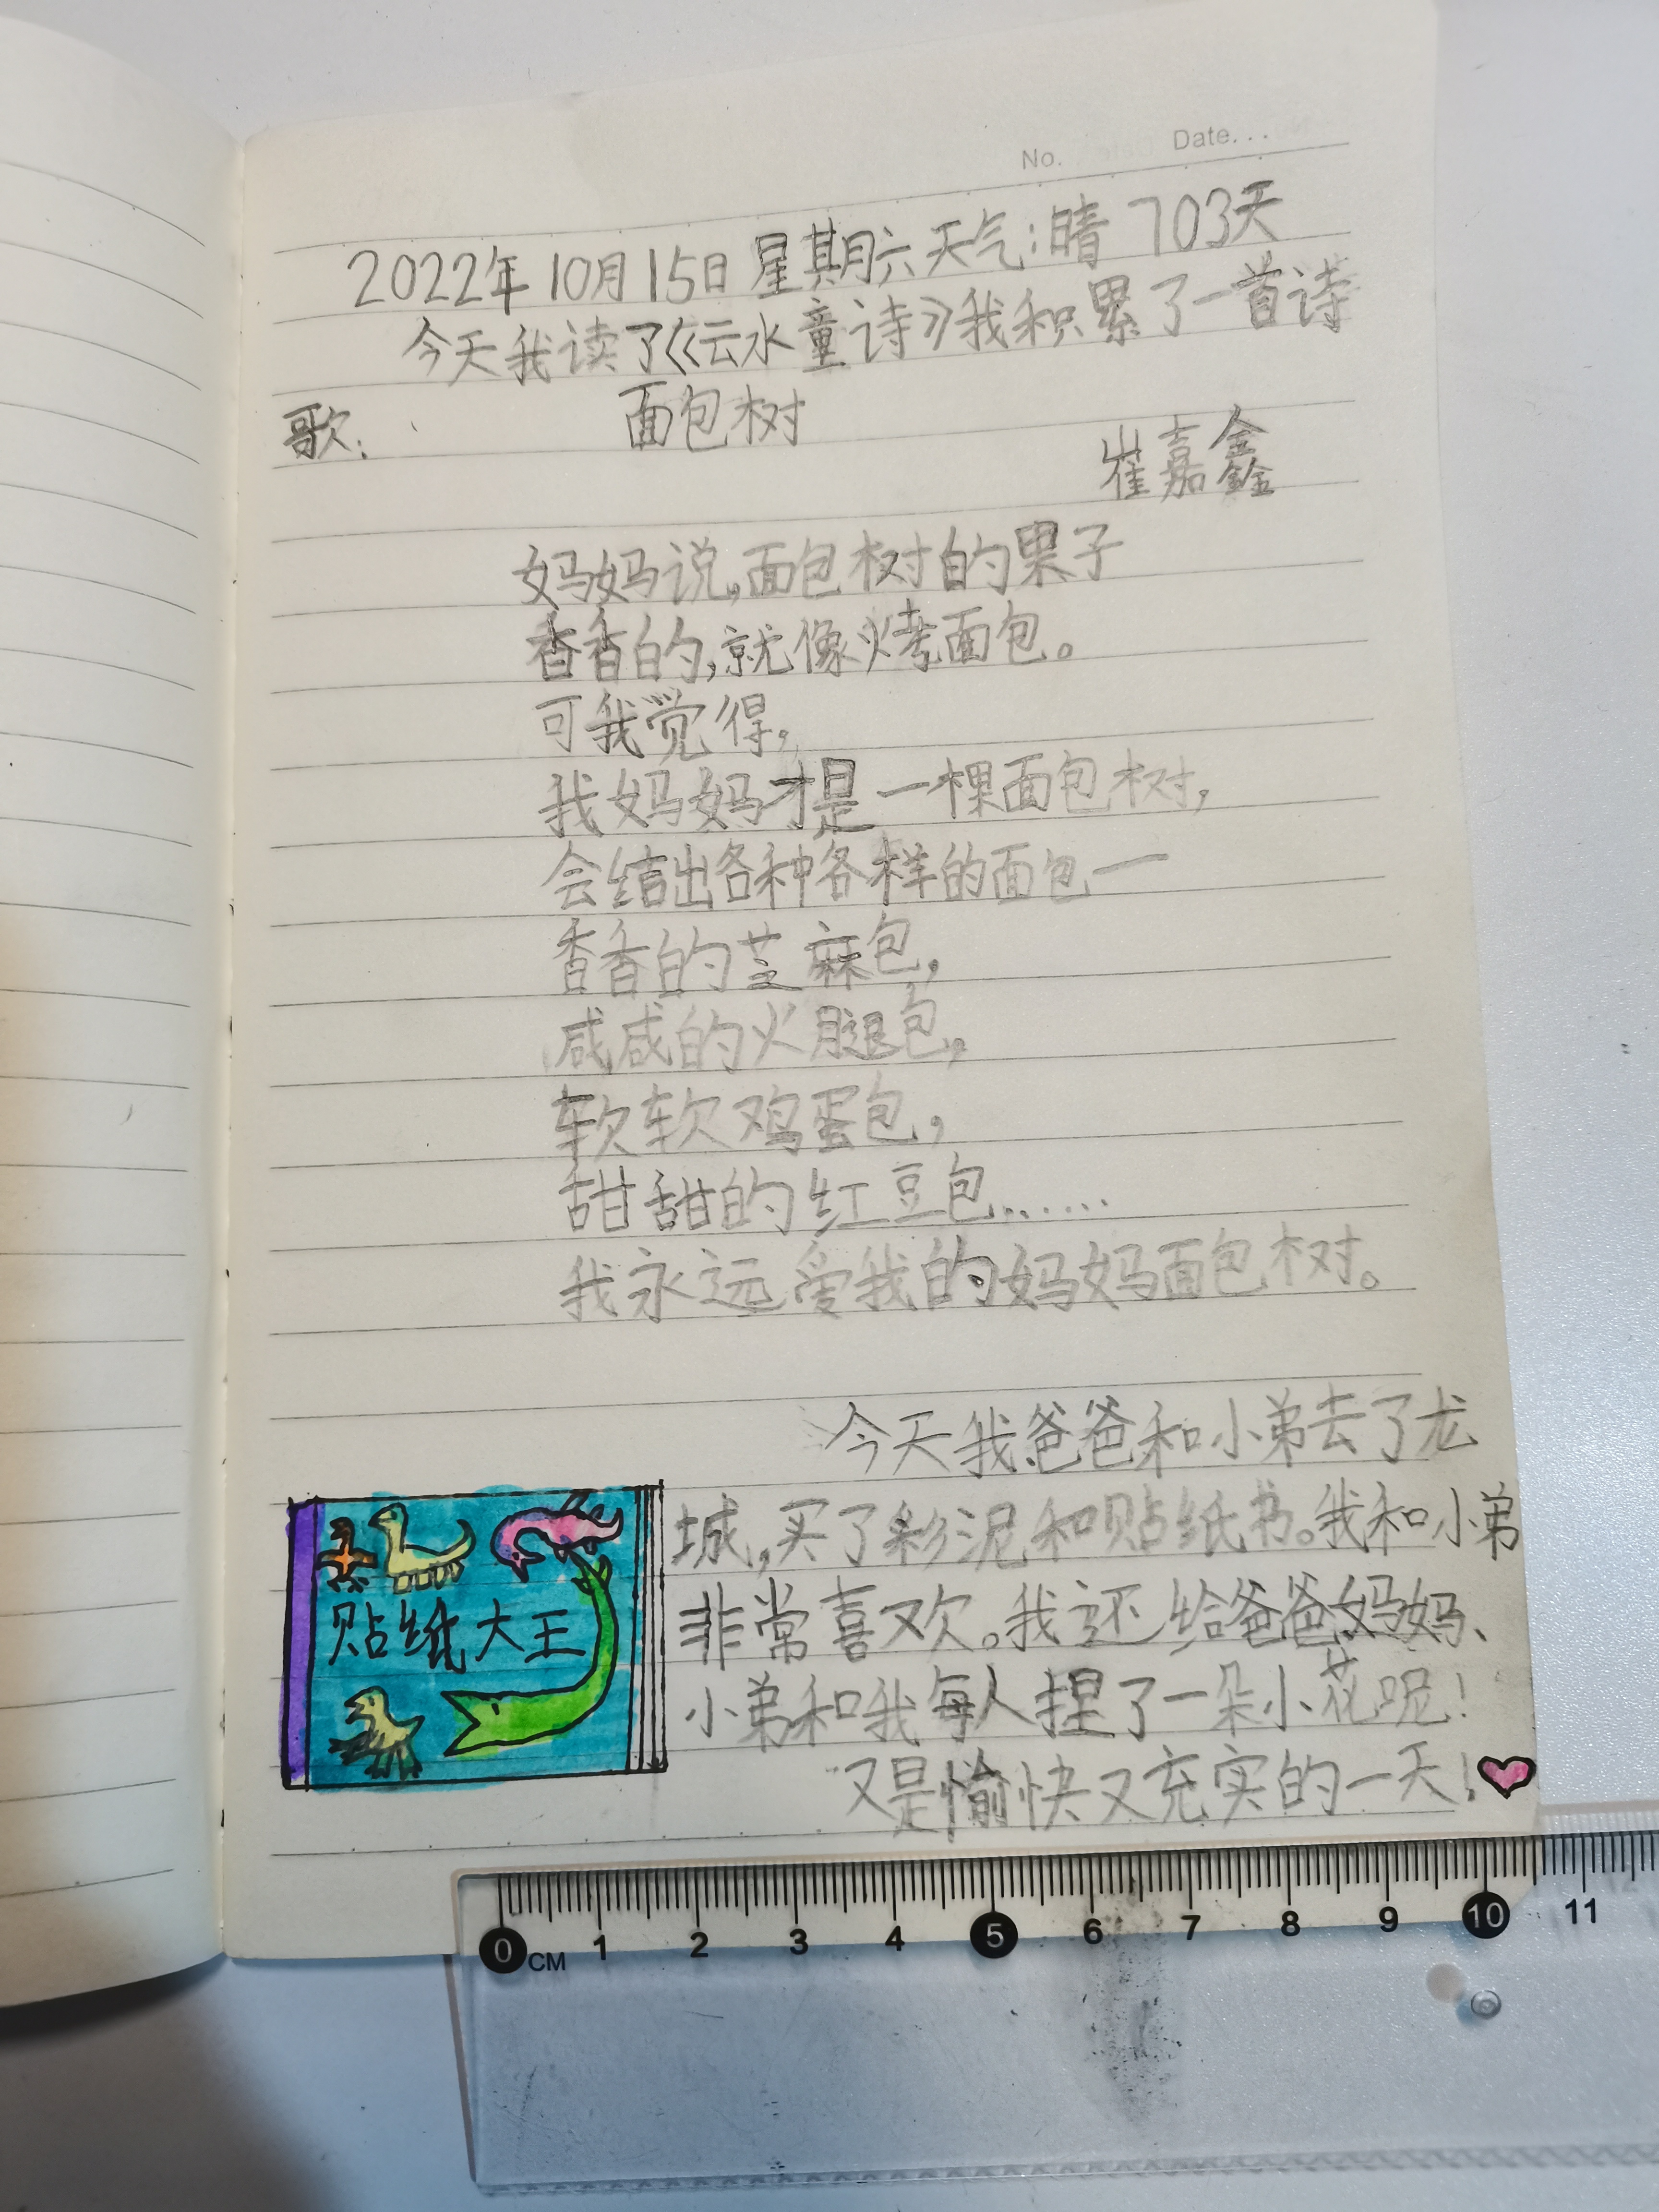 No. Date...
2022年10月15日 星期六 天气:晴 703天
今天我读了《云水童诗》我积累了一首诗
歌:
面包树
崔嘉鑫
妈妈说,面包树的果子
香香的,就像烤面包。
可我觉得,
我妈妈才是一棵面包树,
会结出各种各样的面包一
香香的芝麻包,
咸咸的火腿包,
软软鸡蛋包,
甜甜的红豆包……
我永远爱我的妈妈面包树。
今天我爸爸和小弟去了龙
城,买了彩泥和贴纸书。我和小弟
非常喜欢。我还给爸爸妈妈、
小弟和我每人捏了一朵小花呢!
又是愉快又充实的一天!
贴纸大王
0 CM 1 2 3 4 5 6 7 8 9 10 11 12